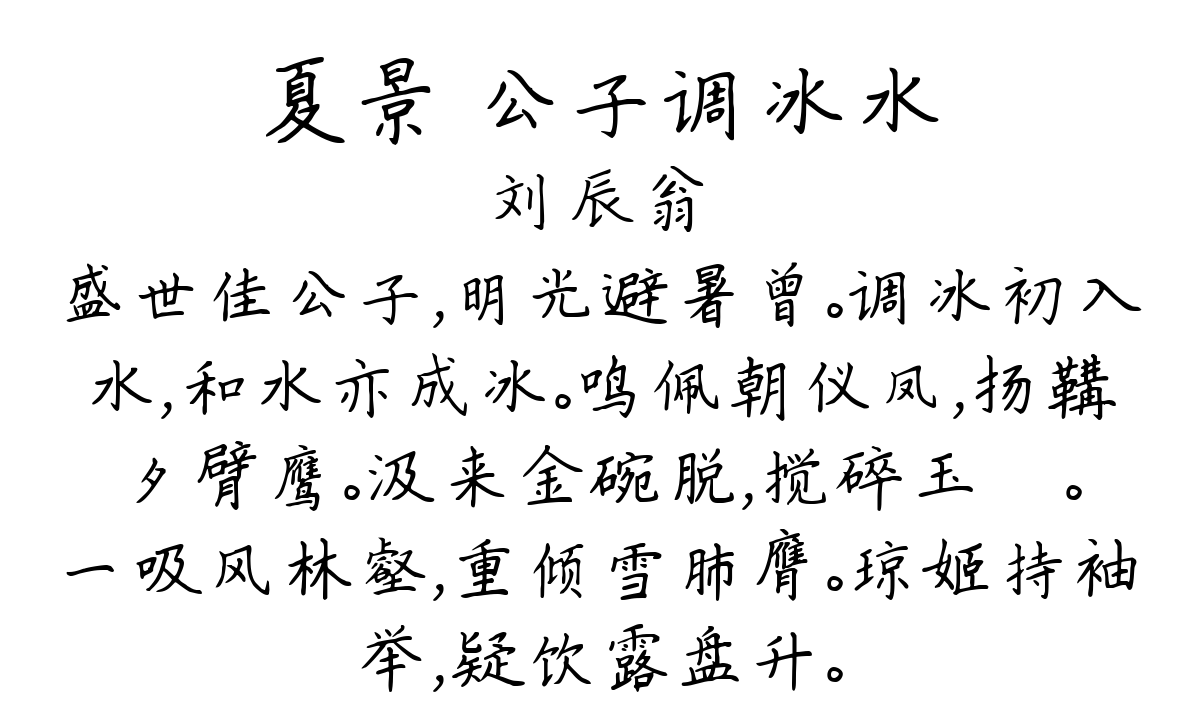 夏景 公子调冰水
刘辰翁
盛世佳公子,明光避暑曾。调冰初入
水,和水亦成冰。鸣佩朝仪凤,扬鞲
夕臂鹰。汲来金碗脱,搅碎玉 。
一吸风林壑,重倾雪肺膺。琼姬持袖
举,疑饮露盘升。